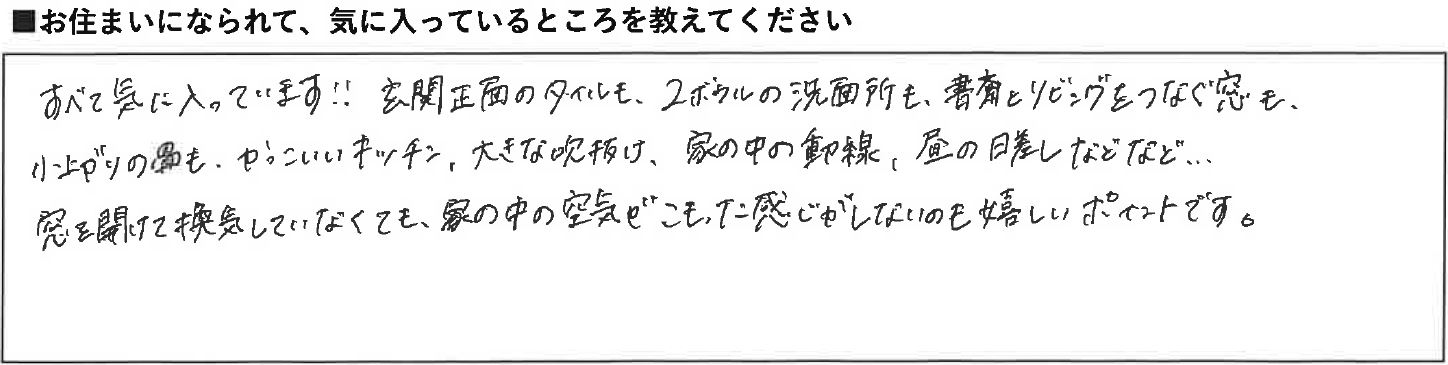 ■お住まいになられて、気に入っているところを教えてください
すべて気に入っています!! 玄関正面のタイルも、2ボウルの洗面所も、書斎とリビングをつなぐ窓も、
小上がりの畳も、かっこいいキッチン、大きな吹抜け、家の中の動線、昼の日差しなどなど…
窓を開けて換気していなくても、家の中の空気がこもった感じがしないのも嬉しいポイントです。